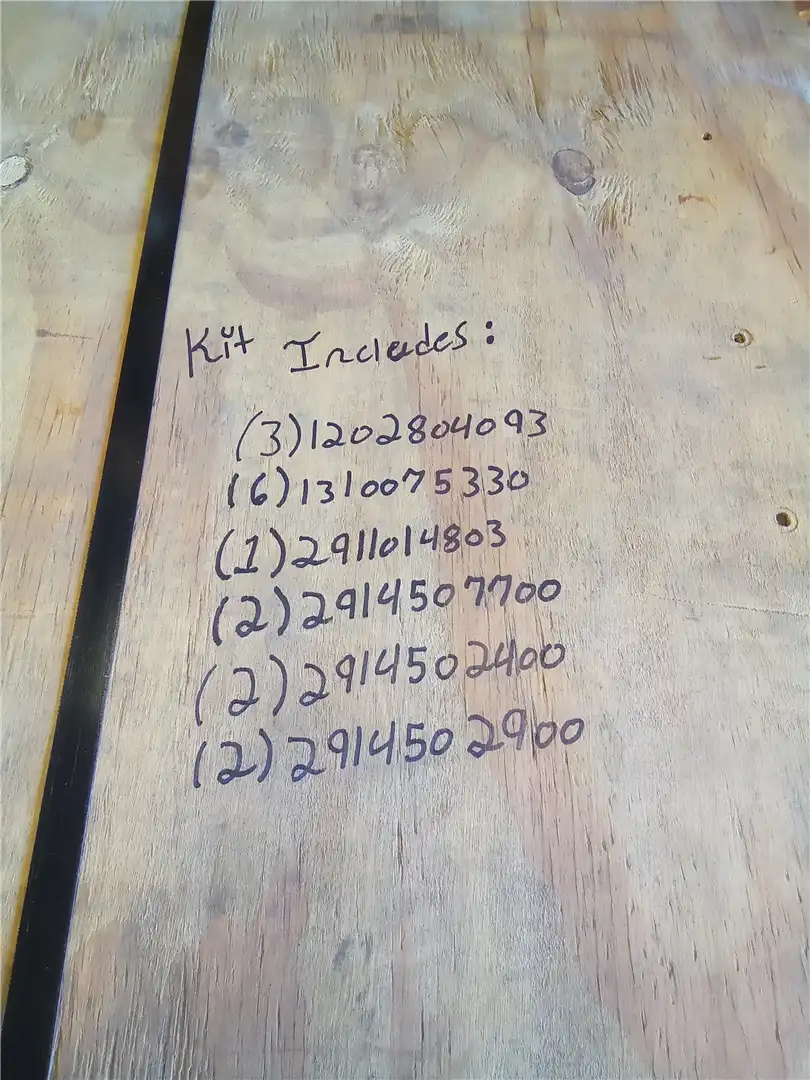 Kit Includes:
(3)1202804093
(6)1310075330
(1)2911014803
(2)2914507700
(2)2914502400
(2)2914502900